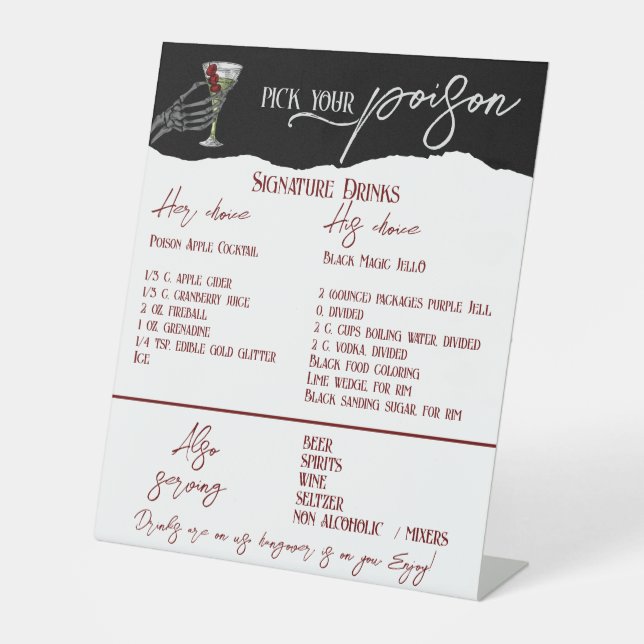 PICK YOUR poison
SIGNATURE DRINKS
Her choice
POISON APPLE COCKTAIL
1/3 C. APPLE CIDER
1/3 C. CRANBERRY JUICE
2 OZ. FIREBALL
1 OZ. GRENADINE
1/4 TSP. EDIBLE GOLD GLITTER
ICE
His choice
BLACK MAGIC JELLO
2 (6OUNCE) PACKAGES PURPLE JELL
O, DIVIDED
2 C. CUPS BOILING WATER, DIVIDED
2 C. VODKA, DIVIDED
BLACK FOOD COLORING
LIME WEDGE, FOR RIM
BLACK SANDING SUGAR, FOR RIM
Also
serving
BEER
SPIRITS
WINE
SELTZER
NON ALCOHOLIC / MIXERS
Drinks are on us, hangover is on you. Enjoy!